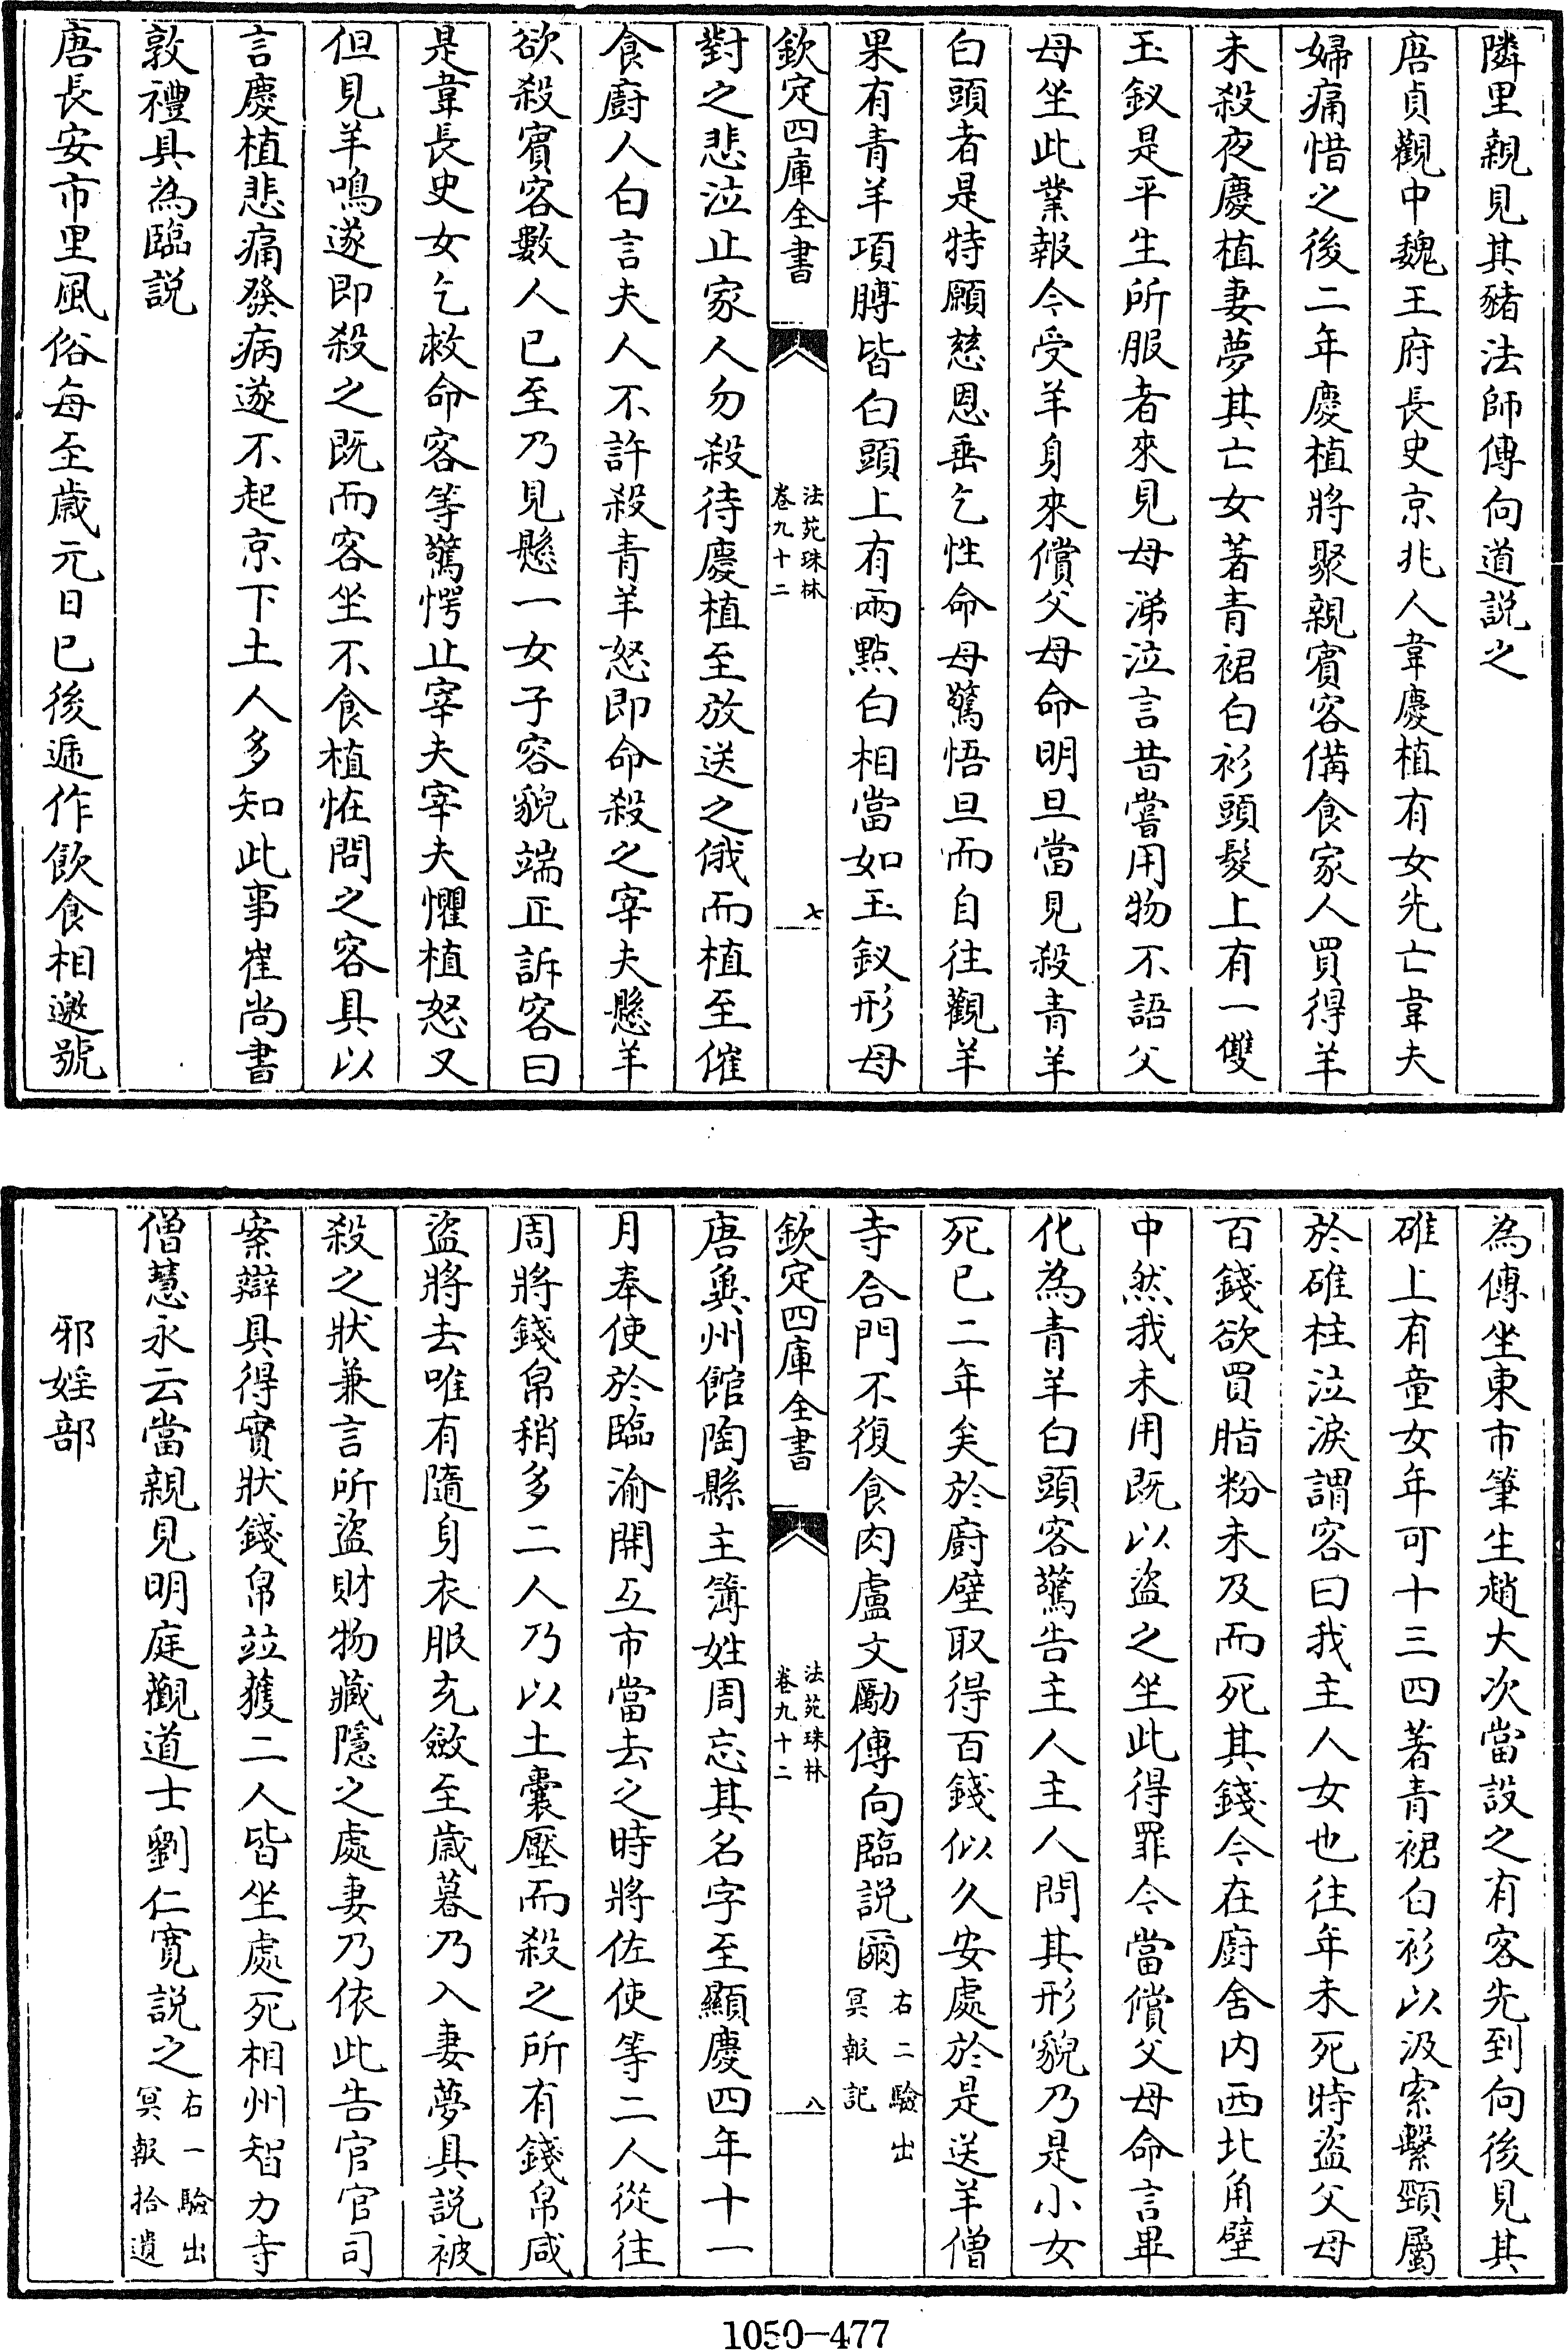 隣里親見其豬法師傳向道説之
唐貞觀中魏王府長史京兆人韋慶植有女先亡韋夫
婦痛惜之後二年慶植將聚親賓客備食家人買得羊
未殺夜慶植妻夢其亡女著青裙白衫頭髮上有一雙
玉釵是平生所服者來見母涕泣言昔嘗用物不語父
母坐此業報今受羊身來償父母命明旦當見殺青羊
白頭者是特願慈恩垂乞性命母驚悟旦而自往觀羊
果有青羊項膊皆白頭上有兩點白相當如玉釵形母
欽定四庫全書
法苑珠林
卷九十二
七
對之悲泣止家人勿殺待慶植至放送之俄而植至催
食廚人白言夫人不許殺青羊怒即命殺之宰夫懸羊
欲殺賓客數人已至乃見懸一女子容貌端正訴客曰
是韋長史女乞救命客等驚愕止宰夫宰夫懼植怒又
但見羊鳴遂即殺之既而客坐不食植恠問之客具以
言慶植悲痛發病遂不起京下土人多知此事崔尚書
敦禮具為臨説
唐長安市里風俗每至歲元日已後遞作飲食相邀號
為傳坐東市筆生趙大次當設之有客先到向後見其
碓上有童女年可十三四著青裙白衫以汲索繫頸屬
於碓柱泣淚謂客曰我主人女也往年未死時盜父母
百錢欲買脂粉未及而死其錢今在廚舍内西北角壁
中然我未用既以盜之坐此得罪今當償父母命言畢
化為青羊白頭客驚告主人主人問其形貌乃是小女
死已二年矣於廚壁取得百錢似久安處於是送羊僧
寺合門不復食肉盧文勵傳向臨説爾右二驗出
冥報記
欽定四庫全書
法苑珠林
卷九十二
八
唐兾州館陶縣主簿姓周忘其名字至顯慶四年十一
月奉使於臨渝開互市當去之時將佐使等二人從往
周將錢帛稍多二人乃以土囊壓而殺之所有錢帛咸
盜將去唯有隨身衣服充斂至歲暮乃入妻夢具説被
殺之狀兼言所盜財物藏隱之處妻乃依此告官官司
案辯具得實狀錢帛竝獲二人皆坐處死相州智力寺
僧慧永云當親見明庭觀道士劉仁寛説之右一驗出
冥報拾遺
邪婬部
1050-477